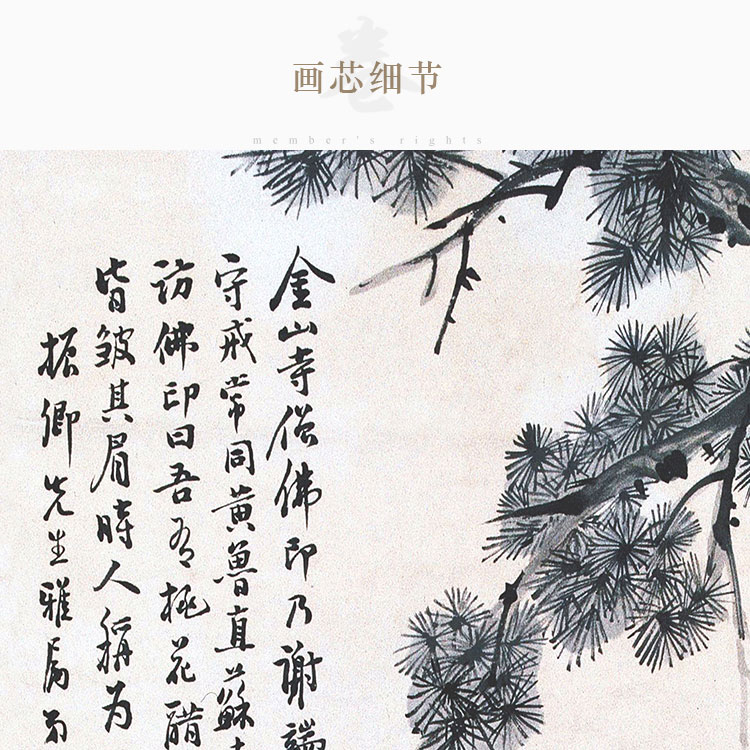 画芯细节
member's rights
金山寺僧佛印乃谢端
守戒常同黄鲁直苏
访佛印曰吾有桃花醋
皆皱其眉時人稱为
振卿先生雅属